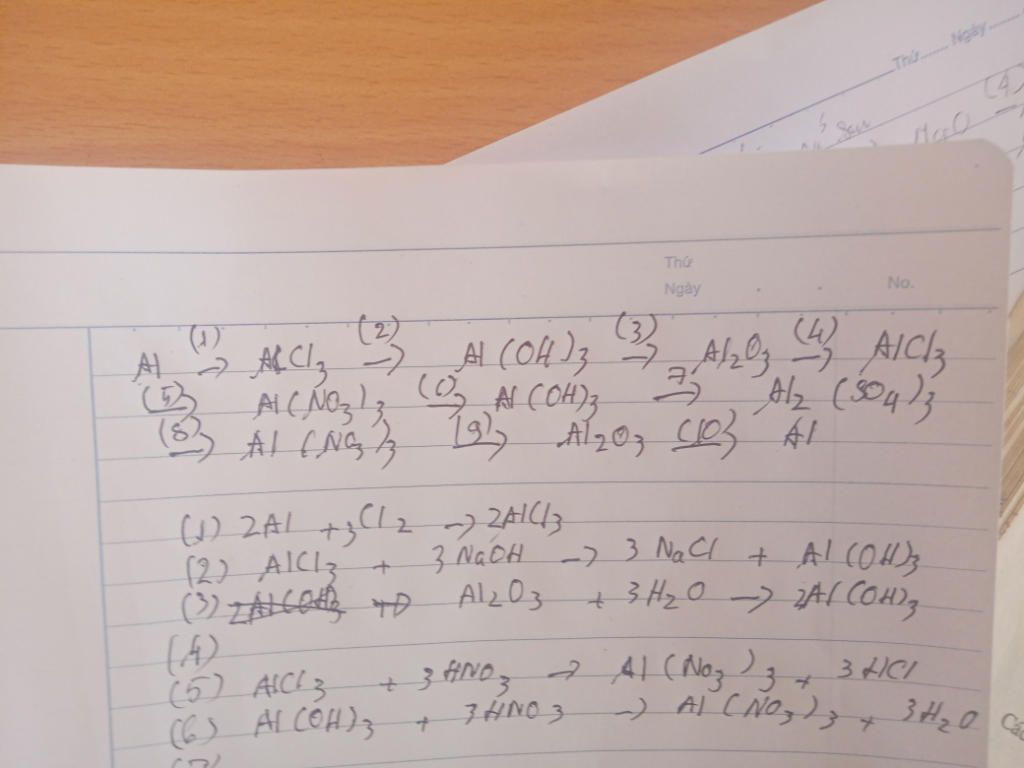 Thứ...... Ngày......
(4)
MgO
Thứ
Ngày
No.
Al (1)→ AlCl3 (2)→ Al(OH)3 (3)→ Al2O3 (4)→ AlCl3
(5)→ Al(NO3)3 (6)→ Al(OH)3 7→ Al2(SO4)3
(8)→ Al(NO3)3 (9)→ Al2O3 (10)→ Al
(1) 2Al + 3Cl2 → 2AlCl3
(2) AlCl3 + 3NaOH → 3NaCl + Al(OH)3
(3) Al2O3 + 3H2O → 2Al(OH)3
(4)
(5) AlCl3 + 3HNO3 → Al(NO3)3 + 3HCl
(6) Al(OH)3 + 3HNO3 → Al(NO3)3 + 3H2O